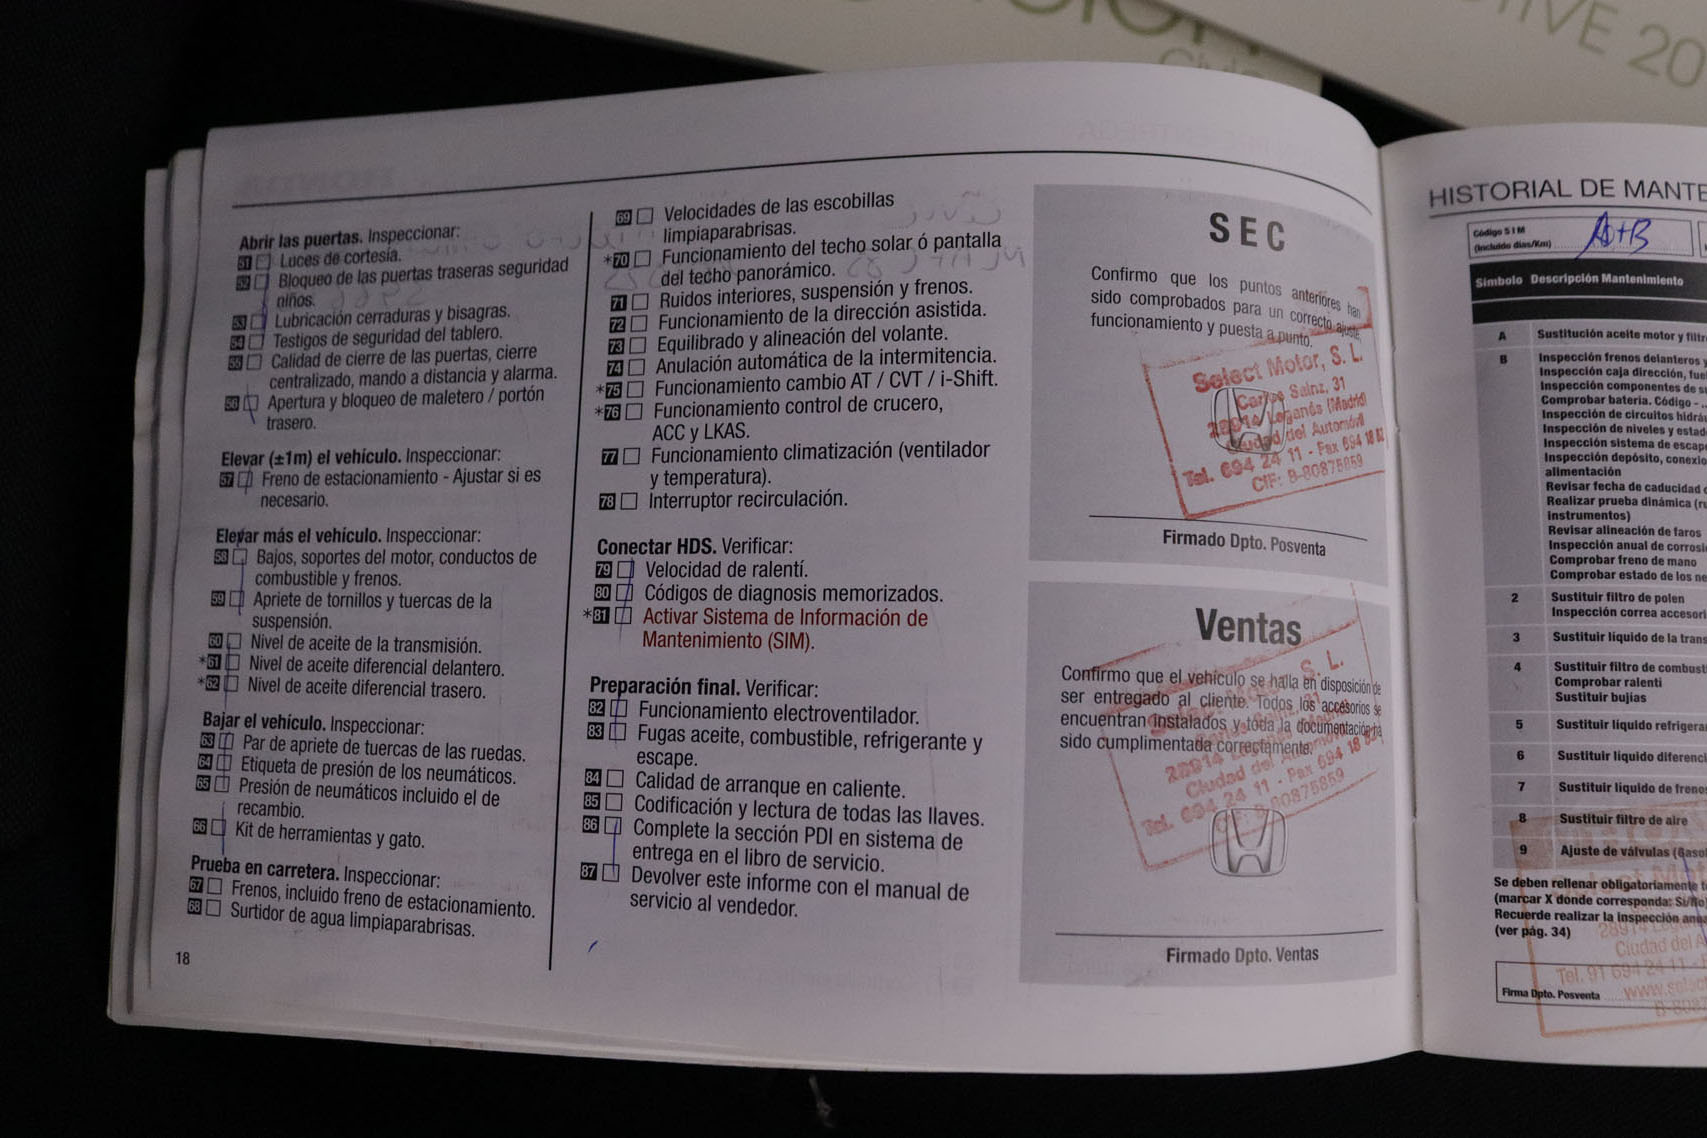 TIVE 20
Civic
Abrir las puertas. Inspeccionar:
51 Luces de cortesía.
52 Bloqueo de las puertas traseras seguridad
niños.
53 Lubricación cerraduras y bisagras.
54 Testigos de seguridad del tablero.
55 Calidad de cierre de las puertas, cierre
centralizado, mando a distancia y alarma.
56 Apertura y bloqueo de maletero / portón
trasero.
Elevar (±1m) el vehículo. Inspeccionar:
57 Freno de estacionamiento - Ajustar si es
necesario.
Elevar más el vehículo. Inspeccionar:
58 Bajos, soportes del motor, conductos de
combustible y frenos.
59 Apriete de tornillos y tuercas de la
suspensión.
60 Nivel de aceite de la transmisión.
*61 Nivel de aceite diferencial delantero.
*62 Nivel de aceite diferencial trasero.
Bajar el vehículo. Inspeccionar:
63 Par de apriete de tuercas de las ruedas.
64 Etiqueta de presión de los neumáticos.
65 Presión de neumáticos incluido el de
recambio.
66 Kit de herramientas y gato.
Prueba en carretera. Inspeccionar:
67 Frenos, incluido freno de estacionamiento.
68 Surtidor de agua limpiaparabrisas.
18
69 Velocidades de las escobillas
limpiaparabrisas.
*70 Funcionamiento del techo solar ó pantalla
del techo panorámico.
71 Ruidos interiores, suspensión y frenos.
72 Funcionamiento de la dirección asistida.
73 Equilibrado y alineación del volante.
74 Anulación automática de la intermitencia.
*75 Funcionamiento cambio AT / CVT / i-Shift.
*76 Funcionamiento control de crucero,
ACC y LKAS.
77 Funcionamiento climatización (ventilador
y temperatura).
78 Interruptor recirculación.
Conectar HDS. Verificar:
79 Velocidad de ralentí.
80 Códigos de diagnosis memorizados.
*81 Activar Sistema de Información de
Mantenimiento (SIM).
Preparación final. Verificar:
82 Funcionamiento electroventilador.
83 Fugas aceite, combustible, refrigerante y
escape.
84 Calidad de arranque en caliente.
85 Codificación y lectura de todas las llaves.
86 Complete la sección PDI en sistema de
entrega en el libro de servicio.
87 Devolver este informe con el manual de
servicio al vendedor.
SEC
Confirmo que los puntos anteriores han
sido comprobados para un correcto ajuste,
funcionamiento y puesta a punto.
Select Motor, S. L.
Carlos Sainz, 31
28914 Leganés (Madrid)
Ciudad del Automóvil
Tel. 694 24 11 - Fax 694 18 82
CIF: B-80875859
Firmado Dpto. Posventa
Ventas
Confirmo que el vehículo se halla en disposición de
ser entregado al cliente. Todos los accesorios se
encuentran instalados y toda la documentación ha
sido cumplimentada correctamente.
S. L.
28914
Ciudad del
Tel. 694 24 11 - Fax 694 18 82
B-80875859
Firmado Dpto. Ventas
HISTORIAL DE MANTE
Código S I M
(Incluido días/Km) A+B
Símbolo Descripción Mantenimiento
A Sustitución aceite motor y filtr
B Inspección frenos delanteros y
Inspección caja dirección, fue
Inspección componentes de su
Comprobar batería. Código - ..
Inspección de circuitos hidrá
Inspección de niveles y estad
Inspección sistema de escap
Inspección depósito, conexio
alimentación
Revisar fecha de caducidad
Realizar prueba dinámica (ru
instrumentos)
Revisar alineación de faros
Inspección anual de corrosi
Comprobar freno de mano
Comprobar estado de los ne
2 Sustituir filtro de polen
Inspección correa accesori
3 Sustituir líquido de la trans
4 Sustituir filtro de combust
Comprobar ralentí
Sustituir bujías
5 Sustituir líquido refrigera
6 Sustituir líquido diferenci
7 Sustituir líquido de freno
8 Sustituir filtro de aire
9 Ajuste de válvulas (Gaso
Se deben rellenar obligatoriamente
(marcar X dónde corresponda: Sí/No)
Recuerde realizar la inspección anua
(ver pág. 34)
28914
Ciudad del A
Tel. 91 694 24 11
Firma Dpto. Posventa